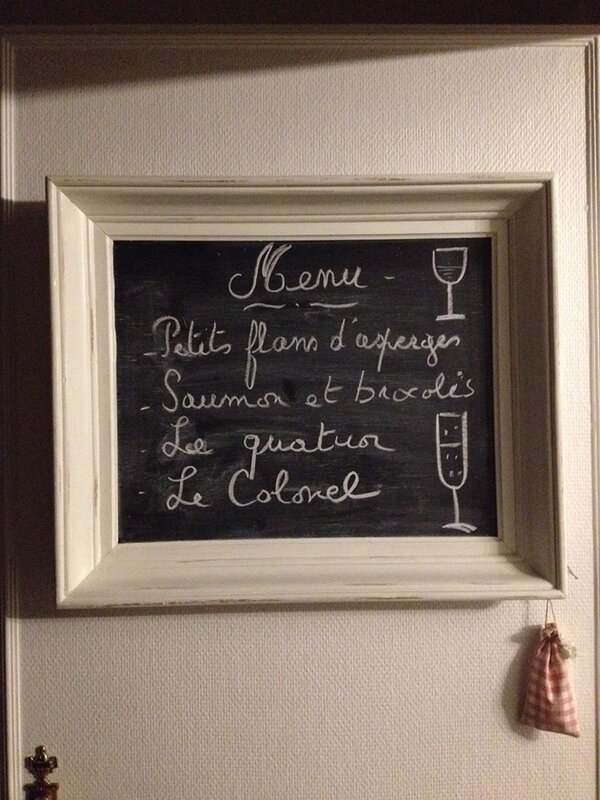 Menu -
- Petits flans d'asperges
- Saumon et brocolis
- Le quatuor
- Le Colonel